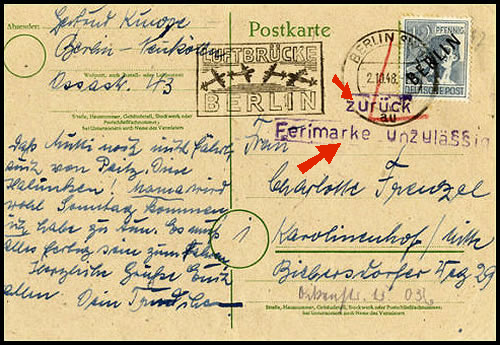 Absender:
Gertrud Kunze
Berlin-Neukölln
Wohnort, auch Zustell- oder Leitpostamt
Ossastr. 43
Straße, Hausnummer, Gebäudeteil, Stockwerk oder
Postschließfachnummer;
bei Untermietern auch Name des Vermieters
Postkarte
LUFTBRÜCKE
BERLIN
BERLIN
2.10.48
12 PFENNIG
BERLIN
DEUTSCHE POST
zurück
au
Ferimarke unzulässig
Daß Mutti noch mitfährt
auch von
Halunken! Mama wird
wohl Sonntag kommen
ich habe zu tun.
alles fertig sein zum Fahren
Herzliche Grüße Euch
allen. Dein
Frau
Charlotte Frenzel
Karolinenhof/
Weg 29
Straße, Hausnummer, Gebäudeteil, Stockwerk oder Postschließfachnummer;
bei Untermietern auch Name des Vermieters